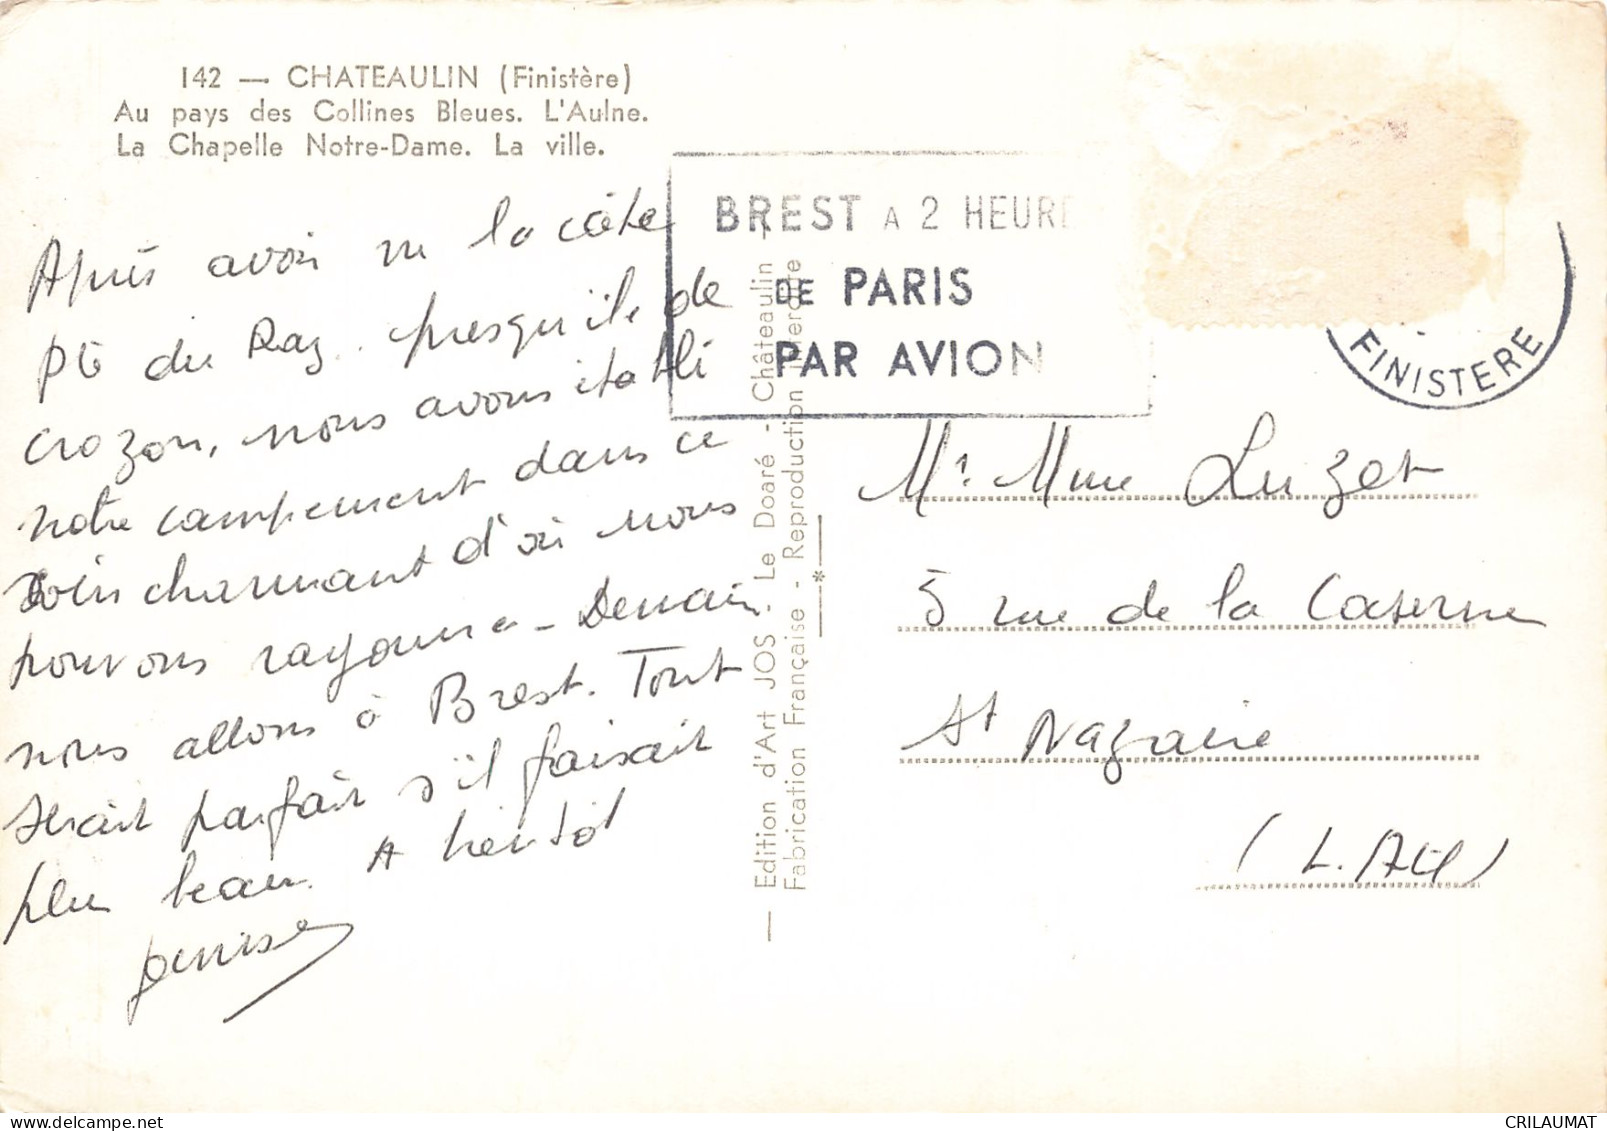 142 — CHATEAULIN (Finistère)
Au pays des Collines Bleues. L'Aulne.
La Chapelle Notre-Dame. La ville.
Après avoir vu la côte
Pte du Raz. presqu'île de
Crozon, nous avons établi
notre campement dans ce
coin charmant d'où nous
pouvons rayonner - Demain
nous allons à Brest. Tout
serait parfait s'il faisait
plus beau. A bientôt
Denise
BREST A 2 HEURE
DE PARIS
PAR AVION
FINISTERE
— Edition d'Art JOS - Le Doaré - Châteaulin —
Fabrication Française - Reproduction interdite
*
Mr Mme Luzet
5 rue de la Caserne
St Nazaire
(L. Atl)
CRILAUMAT